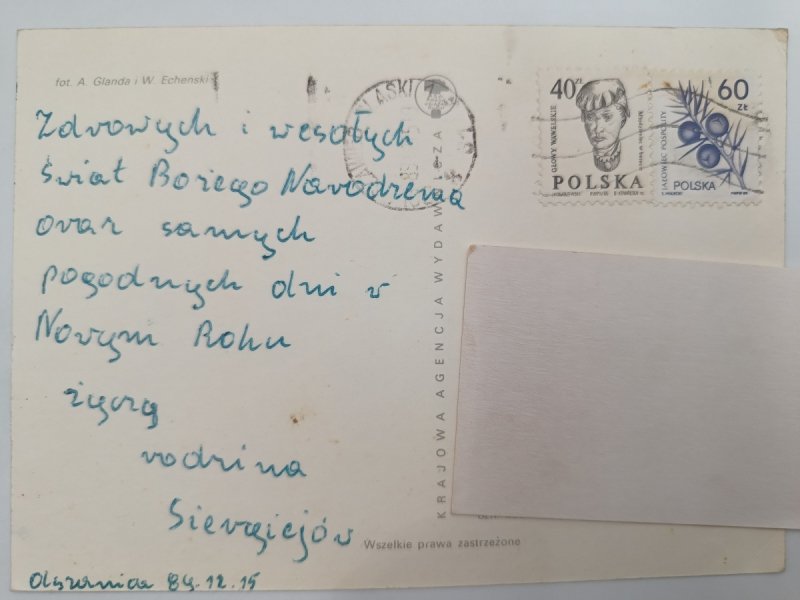 fot. A. Glanda i W. Echeński
Zdrowych i wesołych
Świąt Bożego Narodzenia
oraz samych
pogodnych dni w
Nowym Roku
życzą
rodzina
Siergiejów
89.12.15
KRAJOWA AGENCJA WYDAWNICZA
Wszelkie prawa zastrzeżone
40 ZŁ
GŁOWY WAWELSKIE
POLSKA
60 ZŁ
JAŁOWIEC POSPOLITY
POLSKA